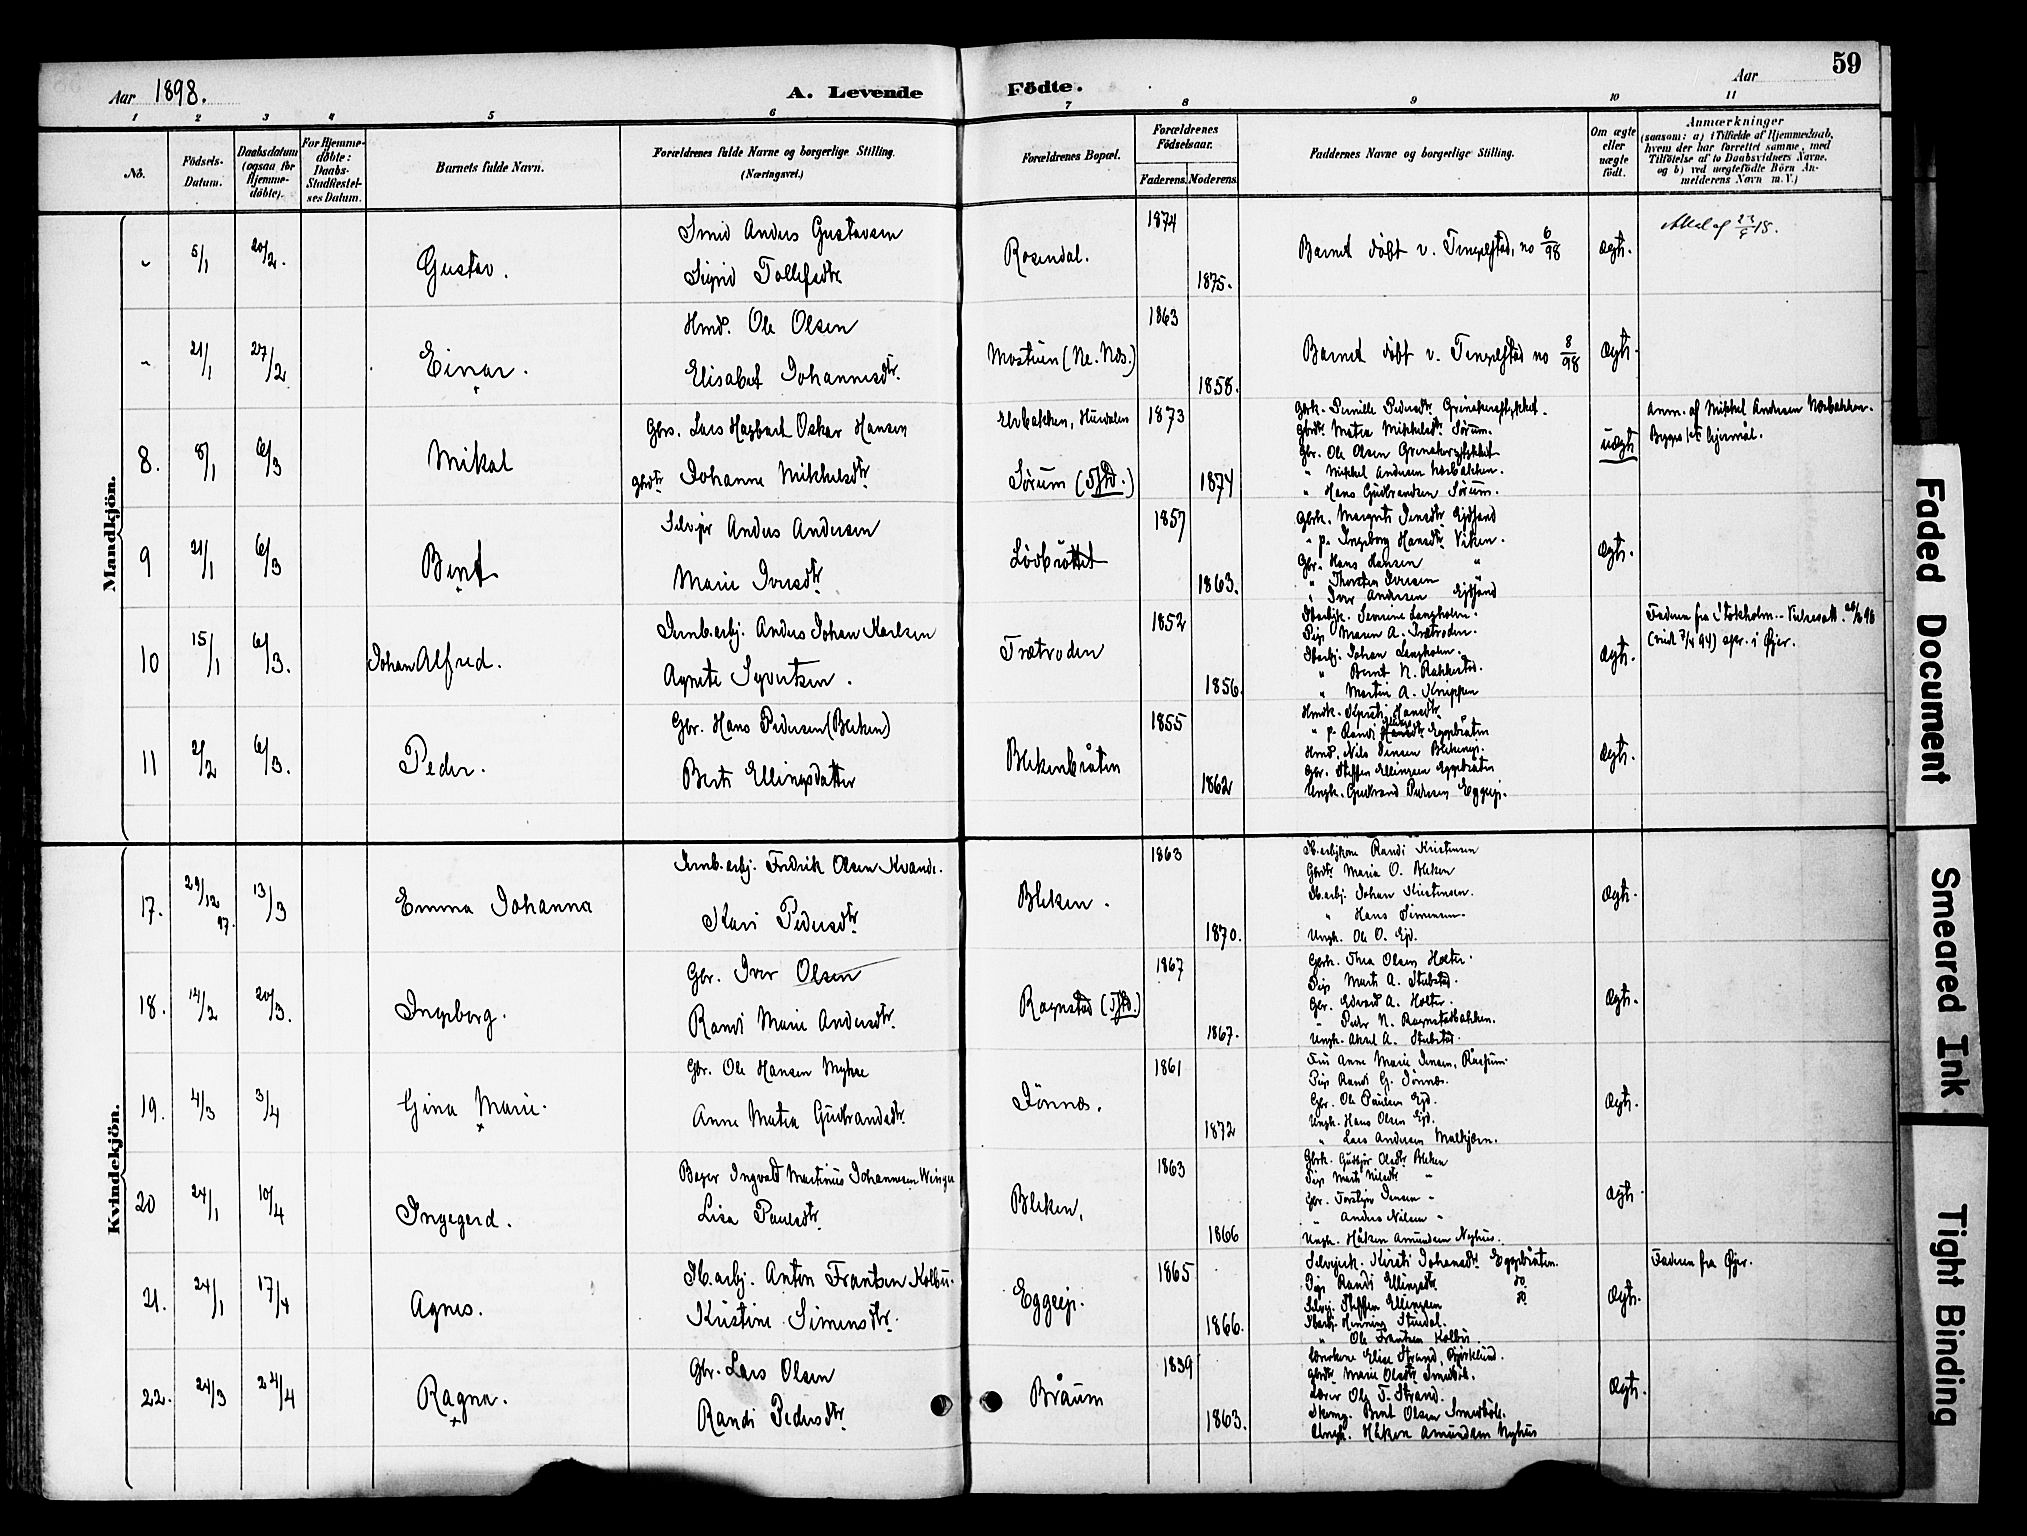 59
Aar 1898.
A. Levende Födte.
Aar
1 2 3 4 5 6 7 8 9 10 11
No.
Födsels-Datum.
Daabsdatum (ogsaa for Hjemme-döbte).
For Hjemme-döbte: Daabs-Stadfæstel-ses Datum.
Barnets fulde Navn.
Forældrenes fulde Navne og borgerlige Stilling. (Næringsvei.)
Forældrenes Bopæl.
Forældrenes Födselsaar.
Faderens. Moderens.
Faddernes Navne og borgerlige Stilling.
Om ægte eller uægte födt.
Anmærkninger
(saasom: a) i Tilfælde af Hjemmedaab, hvem der har forrettet samme, med Tilföielse af to Daabsvidners Navne, og b) ved uægtefödte Börn An-melderens Navn m. V.)
Mandkjön.
5/1 20/2. Gustav.
Smed Anders Gustavsen
Sigrid Tollefsdtr
Rosendal.
1874
1875.
Barnet døbt v. Tingelstad, no 6/98
ægte.
21/1 27/2 Einar.
Hmd. Ole Olsen
Elisabet Johannesdtr.
Mostuen (Ne. Næs.)
1863
1858.
Barnet døbt v. Tingelstad no 8/98
ægte.
8. 8/1 6/3 Mikal
Gbrs. Lars Hagbart Oskar Hansen
gbrdtr Johanne Mikkelsdtr
Elvbakken, Hurdalen
Sørum (Tfld.)
1873
1874
Gbrk. Pernille Pedersdtr. Grinakerstykket.
Gbrdtr. Matea Mikkelsdtr Sørum.
Gbr. Ole Olsen Grinakerstykket
" Mikkel Andersen Nærbakken.
" Hans Gudbrandsen Sørum.
uægte
Anm. af Mikkel Andersen Nærbakken.
9 21/1 6/3 Bent
Selvejer Anders Andersen
Marie Iversdtr
Lödbråttet
1857
1863.
Gbrk. Margrete Jensdtr Ejdsand
" p. Ingeborg Hansdtr. Viken.
Gbr. Hans Hansen "
" Thorsten Iversen
" Iver Andersen Ejdsand
ægte.
10 15/1 6/3. Johan Alfred.
Jernb.arbj. Anders Johan Karlsen
Agnete Syvertsen.
Trætroden
1852
1856.
Jbarbjk. Severine Langholm.
Pige Maren A. Trætroden.
Jbarbj. Johan Langholm.
" Bernt N. Rakkestad.
" Martin A. Knuppen
ægte.
Faderen fra Stokholm.
11 2/2 6/3. Peder.
Gbr. Hans Pedersen (Bleken)
Berte Ellingsdatter
Blekenbråten
1855
1862
Hmdk. Kjersti Hansdtr
" p. Randi Ellings Hansdtr Eggebråten
Hmd. Nils Jensen Blekeneje.
Gbr. Steffen Ellingsen Eggebråten
Ungk. Gudbrand Pedersen Eggeeje.
ægte.
Kvindekjön.
17. 29/12 97. 13/3 Emma Johanna
Jernb.arbj. Fredrik Olsen Kvande.
Kari Pedersdtr
Bleken.
1863
1870.
Jb.arbjkone Randi Kristensen
Gbrdtr Maria O. Bleken
Jb.arbj. Johan Kristensen.
" Hans Simensen.
Ungk. Ole O. Ejd.
ægte.
18. 14/2 20/3. Ingeborg.
Gbr. Iver Olsen
Randi Marie Andersdtr.
Rognstad (Tfld.)
1867
1867.
Gbrk. Thea Olsen Holter.
Pige Marte A. Stubstad.
Gbr. Edvard A. Holter.
" Peder N. Rognstadbakken.
Ungk. Aksel A. Stubstad.
ægte.
19. 4/3 3/4 Gina Marie.
Gbr. Ole Hansen Myhre
Anne Matea Gudbrandsdtr.
Dønnæs.
1861
1872
Fru Anne Marie Jensen,
Pige Randi G. Dønnæs.
Gbr. Ole Paulsen Ejd.
Ungk. Hans Olsen Ejd.
" Lars Andersen Malkjærn.
ægte.
20 24/1 10/4 Ingegerd.
Bager Ingvald Martinus Johannesen Winger
Lisa Paulsdtr.
Bleken.
1863
1866
Gbrk. Gudbjør Olsdtr Bleken
Pige Marte Nilsdtr "
Gbr. Torstein Jensen "
" Anders Nilsen "
Ungk. Håken Amundsen Nyhus.
ægte.
21. 24/1 17/4 Agnes.
Jb.arbj. Anton Frantsen Kolbu.
Kristine Simensdtr.
Eggeeje.
1865
1866.
Selvejerk. Kersti Johansdtr. Eggebråten.
Pige Randi Ellingsdtr do
Selvej. Steffen Ellingsen do
Jbarbj. Henning Stuedal.
" Ole Frantsen Kolbu.
ægte.
Faderen fra Øjer.
22. 24/3 24/4 Ragna.
Gbr. Lars Olsen
Randi Pedersdtr
Bråum
1839
1863.
Lærerkone Elise Strand, Bjørklund.
Gbrdtr. Marie Olsdtr Smedsb.
Lærer Ole T. Strand.
Bent Olsen
Ungk. Håken Amundsen Nyhus
ægte.
Faded Document
Smeared Ink
Tight Binding